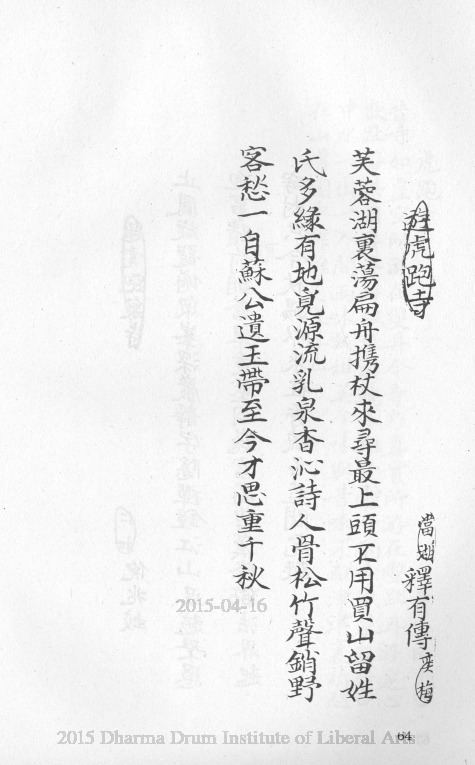 遊虎跑寺
當湖釋有傳
芙蓉湖裏蕩扁舟携杖來尋最上頭不用買山留姓
氏多緣有地覓源流乳泉杳沁詩人骨松竹聲銷野
客愁一自蘇公遺玉帶至今才思重千秋
2015-04-16
64
2015 Dharma Drum Institute of Liberal Arts